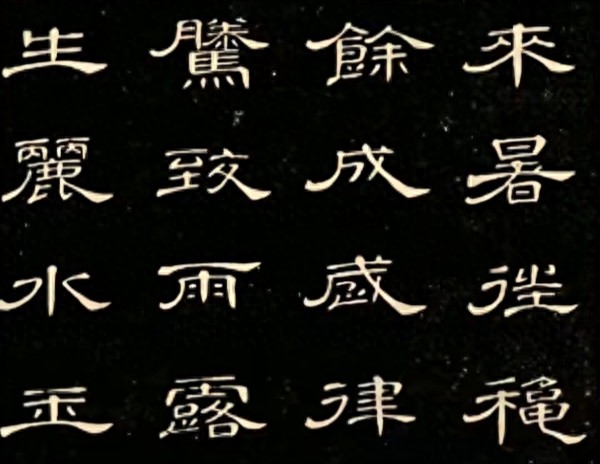 來暑往穐
餘成歲律
騰致雨露
生麗水玉